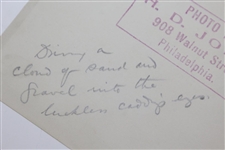 PHOTO
H. D. JO
908 Walnut Stre
Philadelphia.
Driving a
cloud of sand and
gravel into the
luckless caddy's eyes.